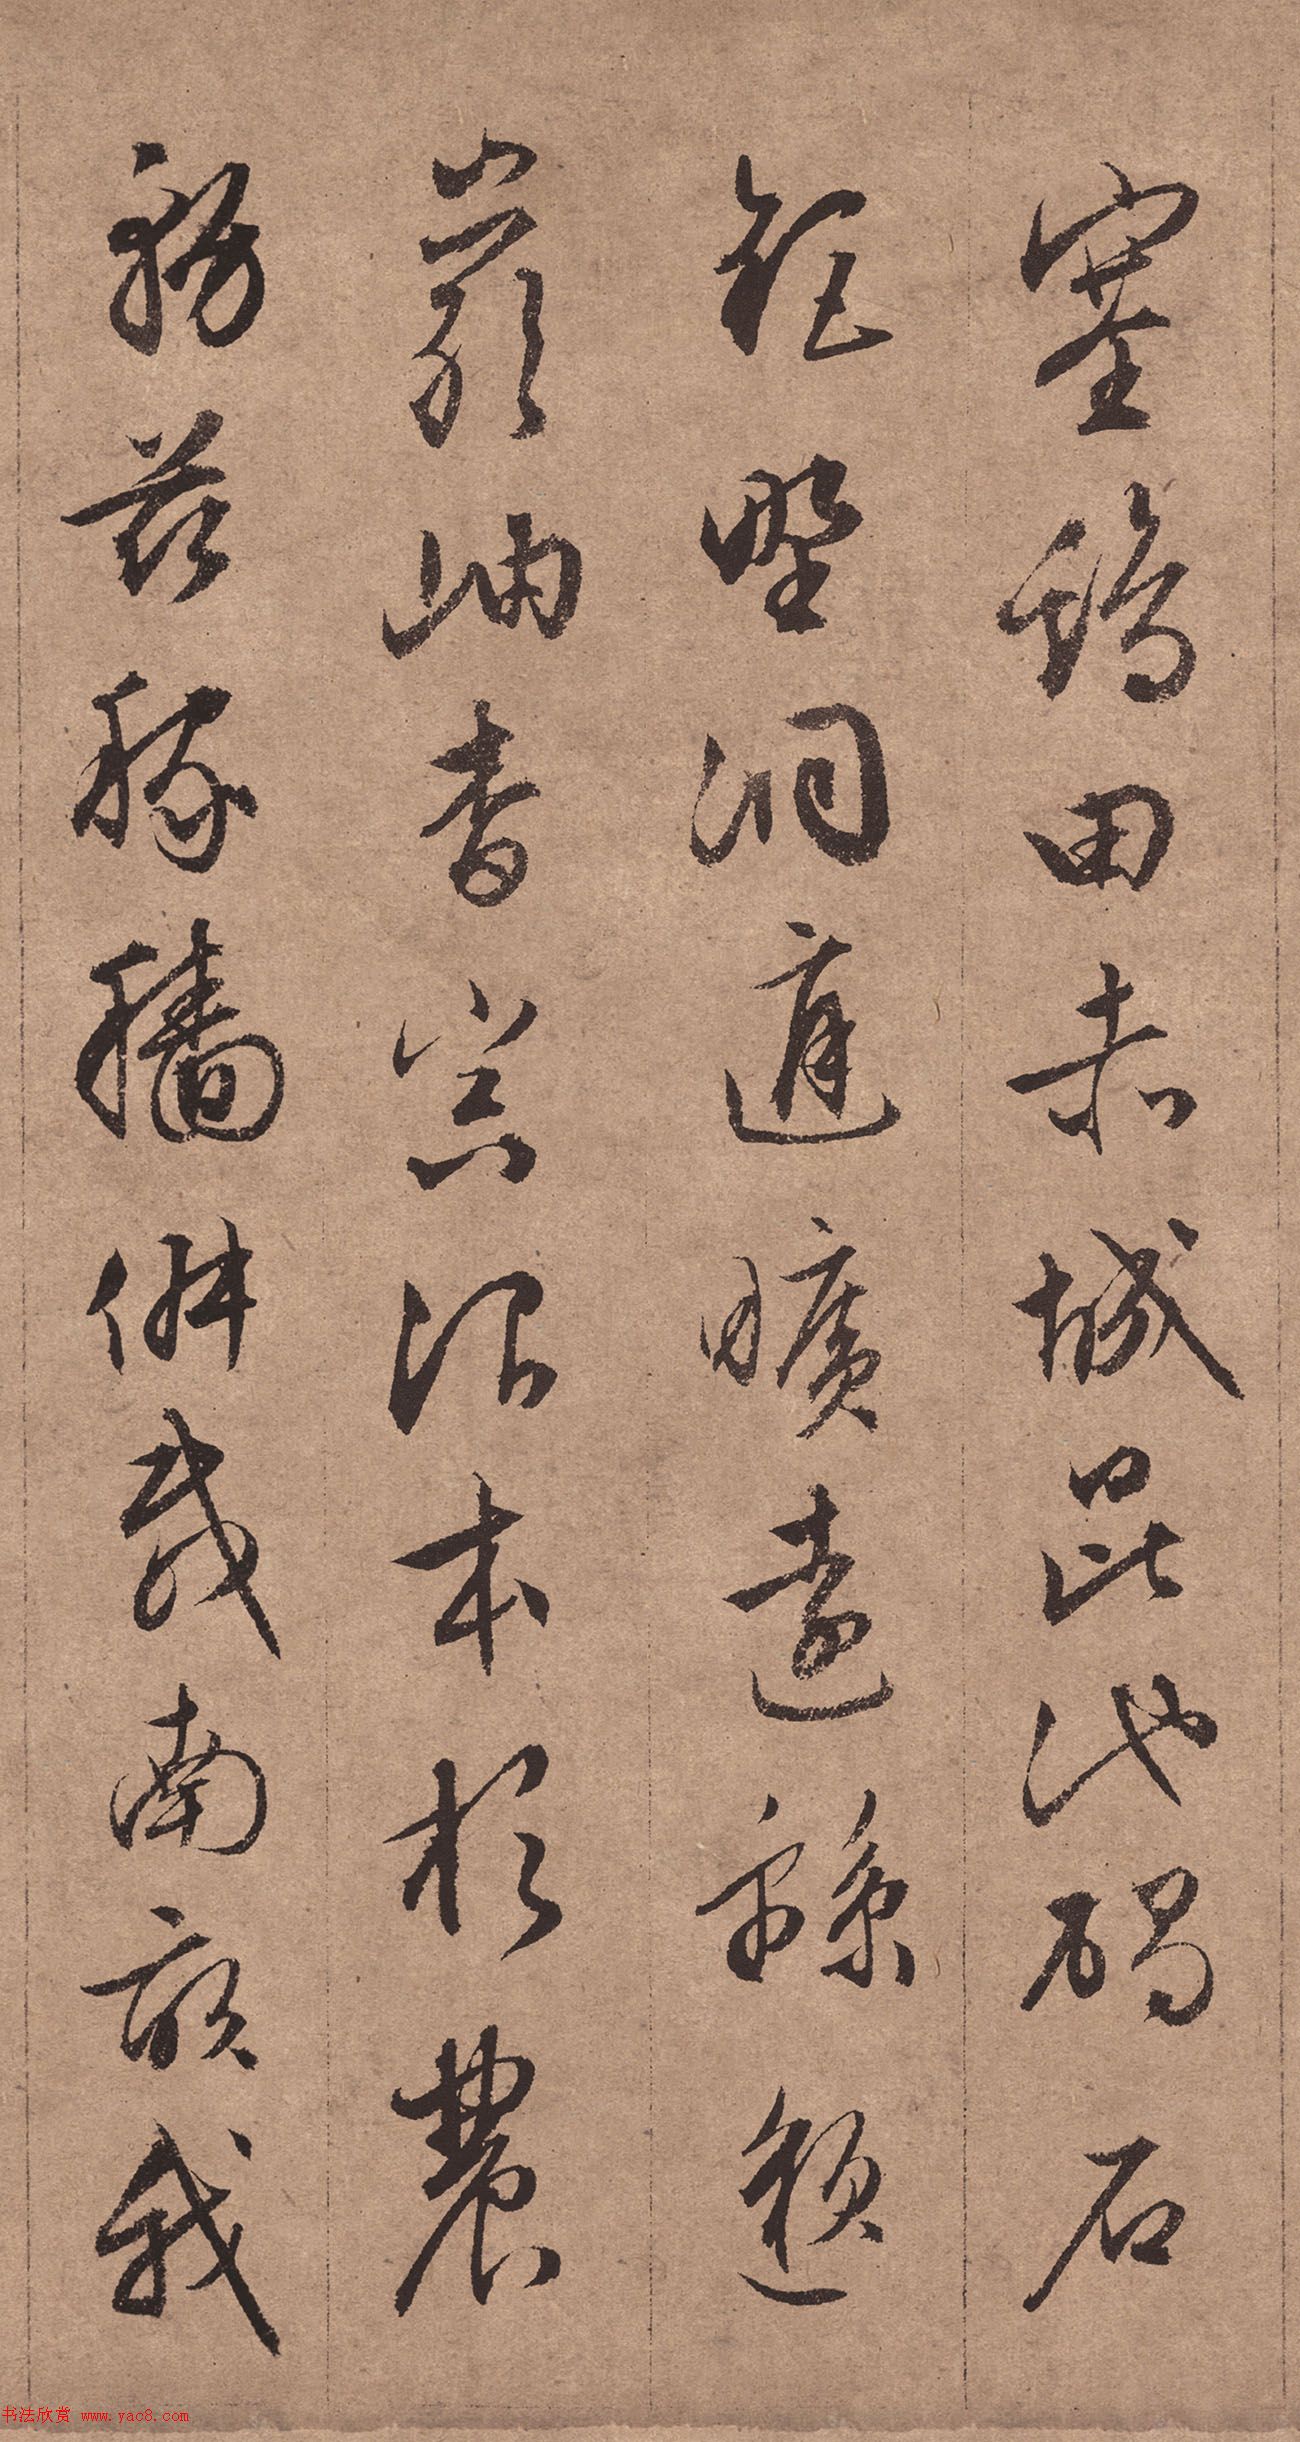 塞鷄田赤城昆池碣石
鉅野洞庭曠遠緜邈
巖岫杳冥治本於農
務茲稼穡俶載南畝我
书法欣赏 www.yac8.com